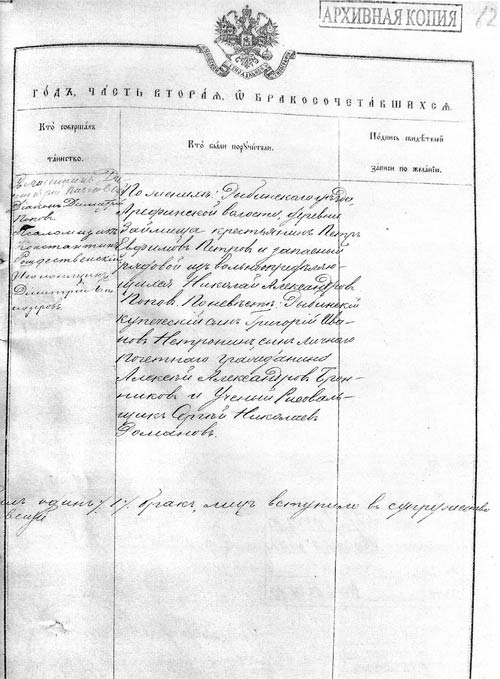 АРХИВНАЯ КОПИЯ
12
ГОДЪ, ЧАСТЬ ВТОРАЯ, Ѡ БРАКОСОЧЕТАВШИХСЯ
Кто совершалъ таинство.
Кто были поручители.
Подпись свидѣтелей записи по желанію.
Діаконъ Димитрій
Поповъ
Псаломщикъ
Константинъ
Рождественскій
Димитрій
По женихѣ: Рыбинскаго уѣзда
Арефинской волости, деревни
Займища крестьянинъ Петръ
Евфимовъ Петровъ и запасный
рядовой изъ вольноопредѣляю-
щихся Николай Александровъ
Поповъ. По невѣстѣ: Рыбинскій
купеческій сынъ Григорій Ива-
новъ сынъ личнаго
почетнаго гражданина
Алексѣй Александровъ Брон-
никовъ и Ученый Рисоваль-
щикъ Сергѣй Николаевъ
Романовъ.
одинъ /1/ бракъ лицъ вступило въ супружество